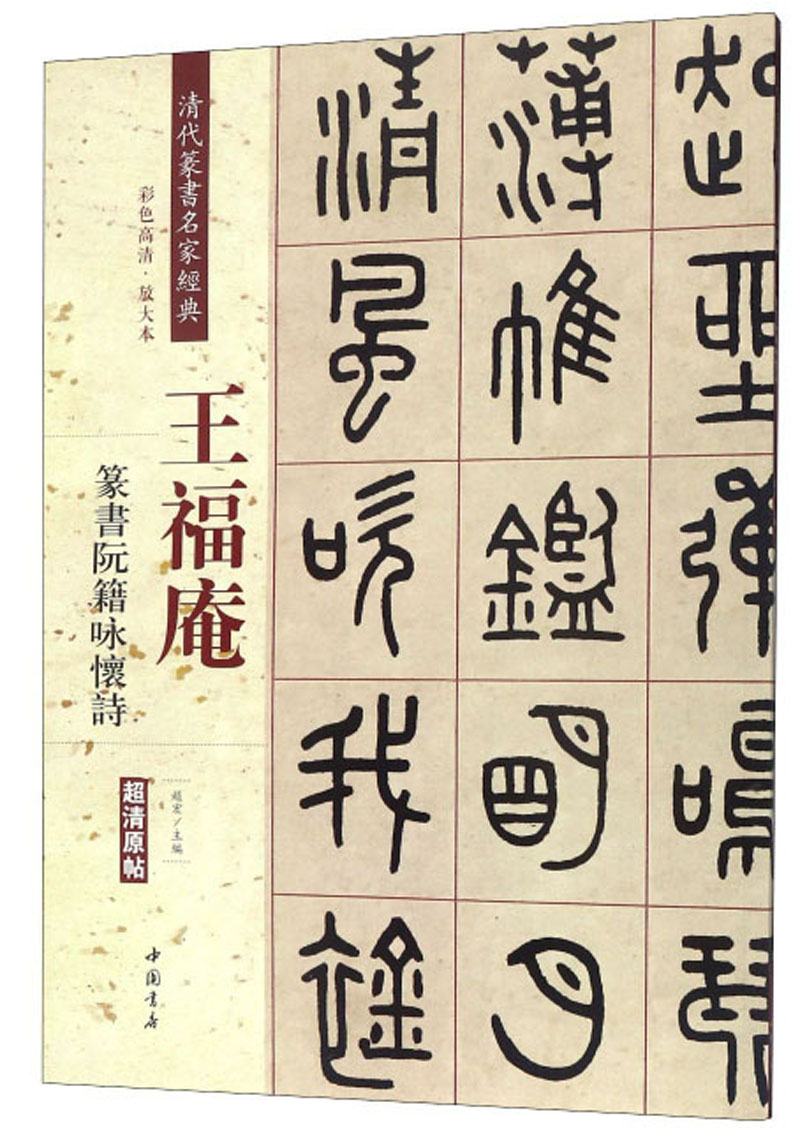 起坐彈鳴琴
薄帷鑑明月
清風吹我襟
清代篆書名家經典
彩色高清·放大本
王福庵
篆書阮籍咏懷詩
趙宏/主編
超清原帖
中国書店